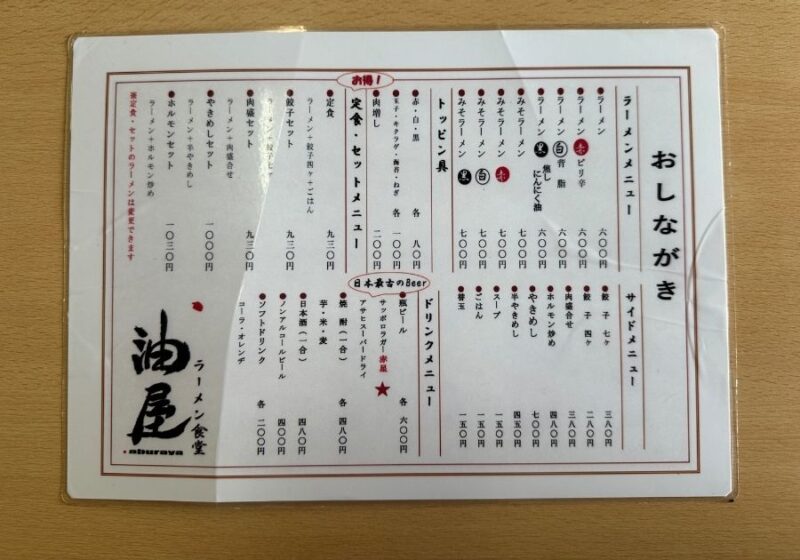 おしながき
ラーメンメニュー
ラーメン 六〇〇円
ラーメン 赤 ピリ辛 六〇〇円
ラーメン 白 背脂 六〇〇円
ラーメン 黒 焦しにんにく油 六〇〇円
みそラーメン 七〇〇円
みそラーメン 赤 七〇〇円
みそラーメン 白 七〇〇円
みそラーメン 黒 七〇〇円
トッピン具
赤・白・黒 各 八〇円
玉子・キクラゲ・海苔・ねぎ 各 一〇〇円
肉増し 二〇〇円
お得!
定食・セットメニュー
定食 九三〇円
ラーメン+餃子四ヶ+ごはん
餃子セット 九三〇円
ラーメン+餃子七ヶ
肉盛セット 九三〇円
ラーメン+肉盛合せ
やきめしセット 一〇〇〇円
ラーメン+半やきめし
ホルモンセット 一〇三〇円
ラーメン+ホルモン炒め
※定食・セットのラーメンは変更できます
サイドメニュー
餃子 七ヶ 三八〇円
餃子 四ヶ 二八〇円
肉盛合せ 三八〇円
ホルモン炒め 四八〇円
やきめし 七〇〇円
半やきめし 四五〇円
スープ 一五〇円
ごはん 一五〇円
替玉 一五〇円
ドリンクメニュー
日本最古のBeer
瓶ビール 各 六〇〇円
サッポロラガー赤星★
アサヒスーパードライ
焼酎(一合) 各 四八〇円
芋・米・麦
日本酒(一合) 四八〇円
ノンアルコールビール 四〇〇円
ソフトドリンク 各 二〇〇円
コーラ・オレンヂ
ラーメン食堂
油屋
aburaya